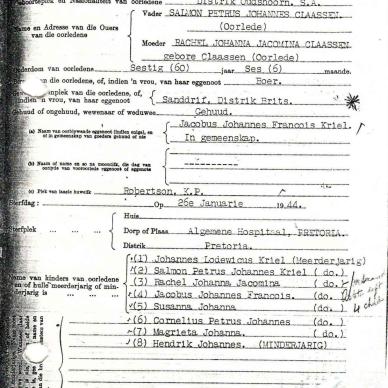 Geboorteplek en Nasionaliteit van oorledene Distrik Oudshoorn, S.A.
Name en Adresse van die Ouers van die oorledene
Vader SALMON PETRUS JOHANNES CLAASSEN
(Oorlede)
Moeder RACHEL JOHANNA JACOMINA CLAASSEN
gebore Claassen (Oorlede)
Ouderdom van oorledene Sestig (60) jaar Ses (6) maande.
van die oorledene, of, indien 'n vrou, van haar eggenoot Boer.
van die oorledene, of, indien 'n vrou, van haar eggenoot Sanddrif, Distrik Brits.
Gehuud of ongehuud, wewenaar of weduwee Gehuud.
(a) Naam van oorblywende eggenoot (indien enige), en of in gemeenskap van goedere gehuud of nie
Jacobus Johannes Francois Kriel.
In gemeenskap.
(b)
(c) Plek van laaste huwelik Robertson, K.P.
Sterfdag: Op 26e Januarie 1944.
Huis
Sterfplek Dorp of Plaas Algemene Hospitaal, PRETORIA.
Distrik Pretoria.
Name van kinders van oorledene en of hulle meerderjarig of minderjarig is
(1) Johannes Lodewicus Kriel (Meerderjarig)
(2) Salmon Petrus Johannes Kriel ( do. )
(3) Rachel Johanna Jacomina ( do. )
(4) Jacobus Johannes Francois. ( do. )
(5) Susanna Johanna ( do. )
(6) Cornelius Petrus Johannes ( do. )
(7) Magrieta Johanna. ( do. )
(8) Hendrik Johannes. (MINDERJARIG)